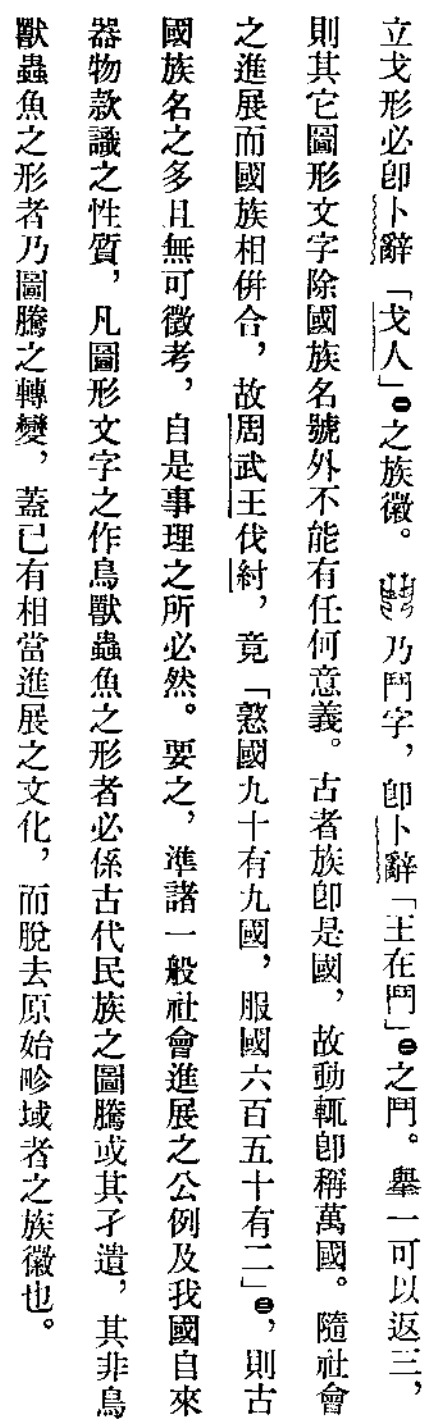 立戈形必卽卜辭「戈人」㊀之族徽。乃鬥字，卽卜辭「王在鬥」㊁之鬥。舉一可以返三，
則其它圖形文字除國族名號外不能有任何意義。古者族卽是國，故動輒卽稱萬國。隨社會
之進展而國族相倂合，故周武王伐紂，竟「憝國九十有九國，服國六百五十有二」㊂，則古
國族名之多且無可徵考，自是事理之所必然。要之，準諸一般社會進展之公例及我國自來
器物款識之性質，凡圖形文字之作鳥獸蟲魚之形者必係古代民族之圖騰或其孑遺，其非鳥
獸蟲魚之形者乃圖騰之轉變，蓋已有相當進展之文化，而脫去原始畛域者之族徽也。